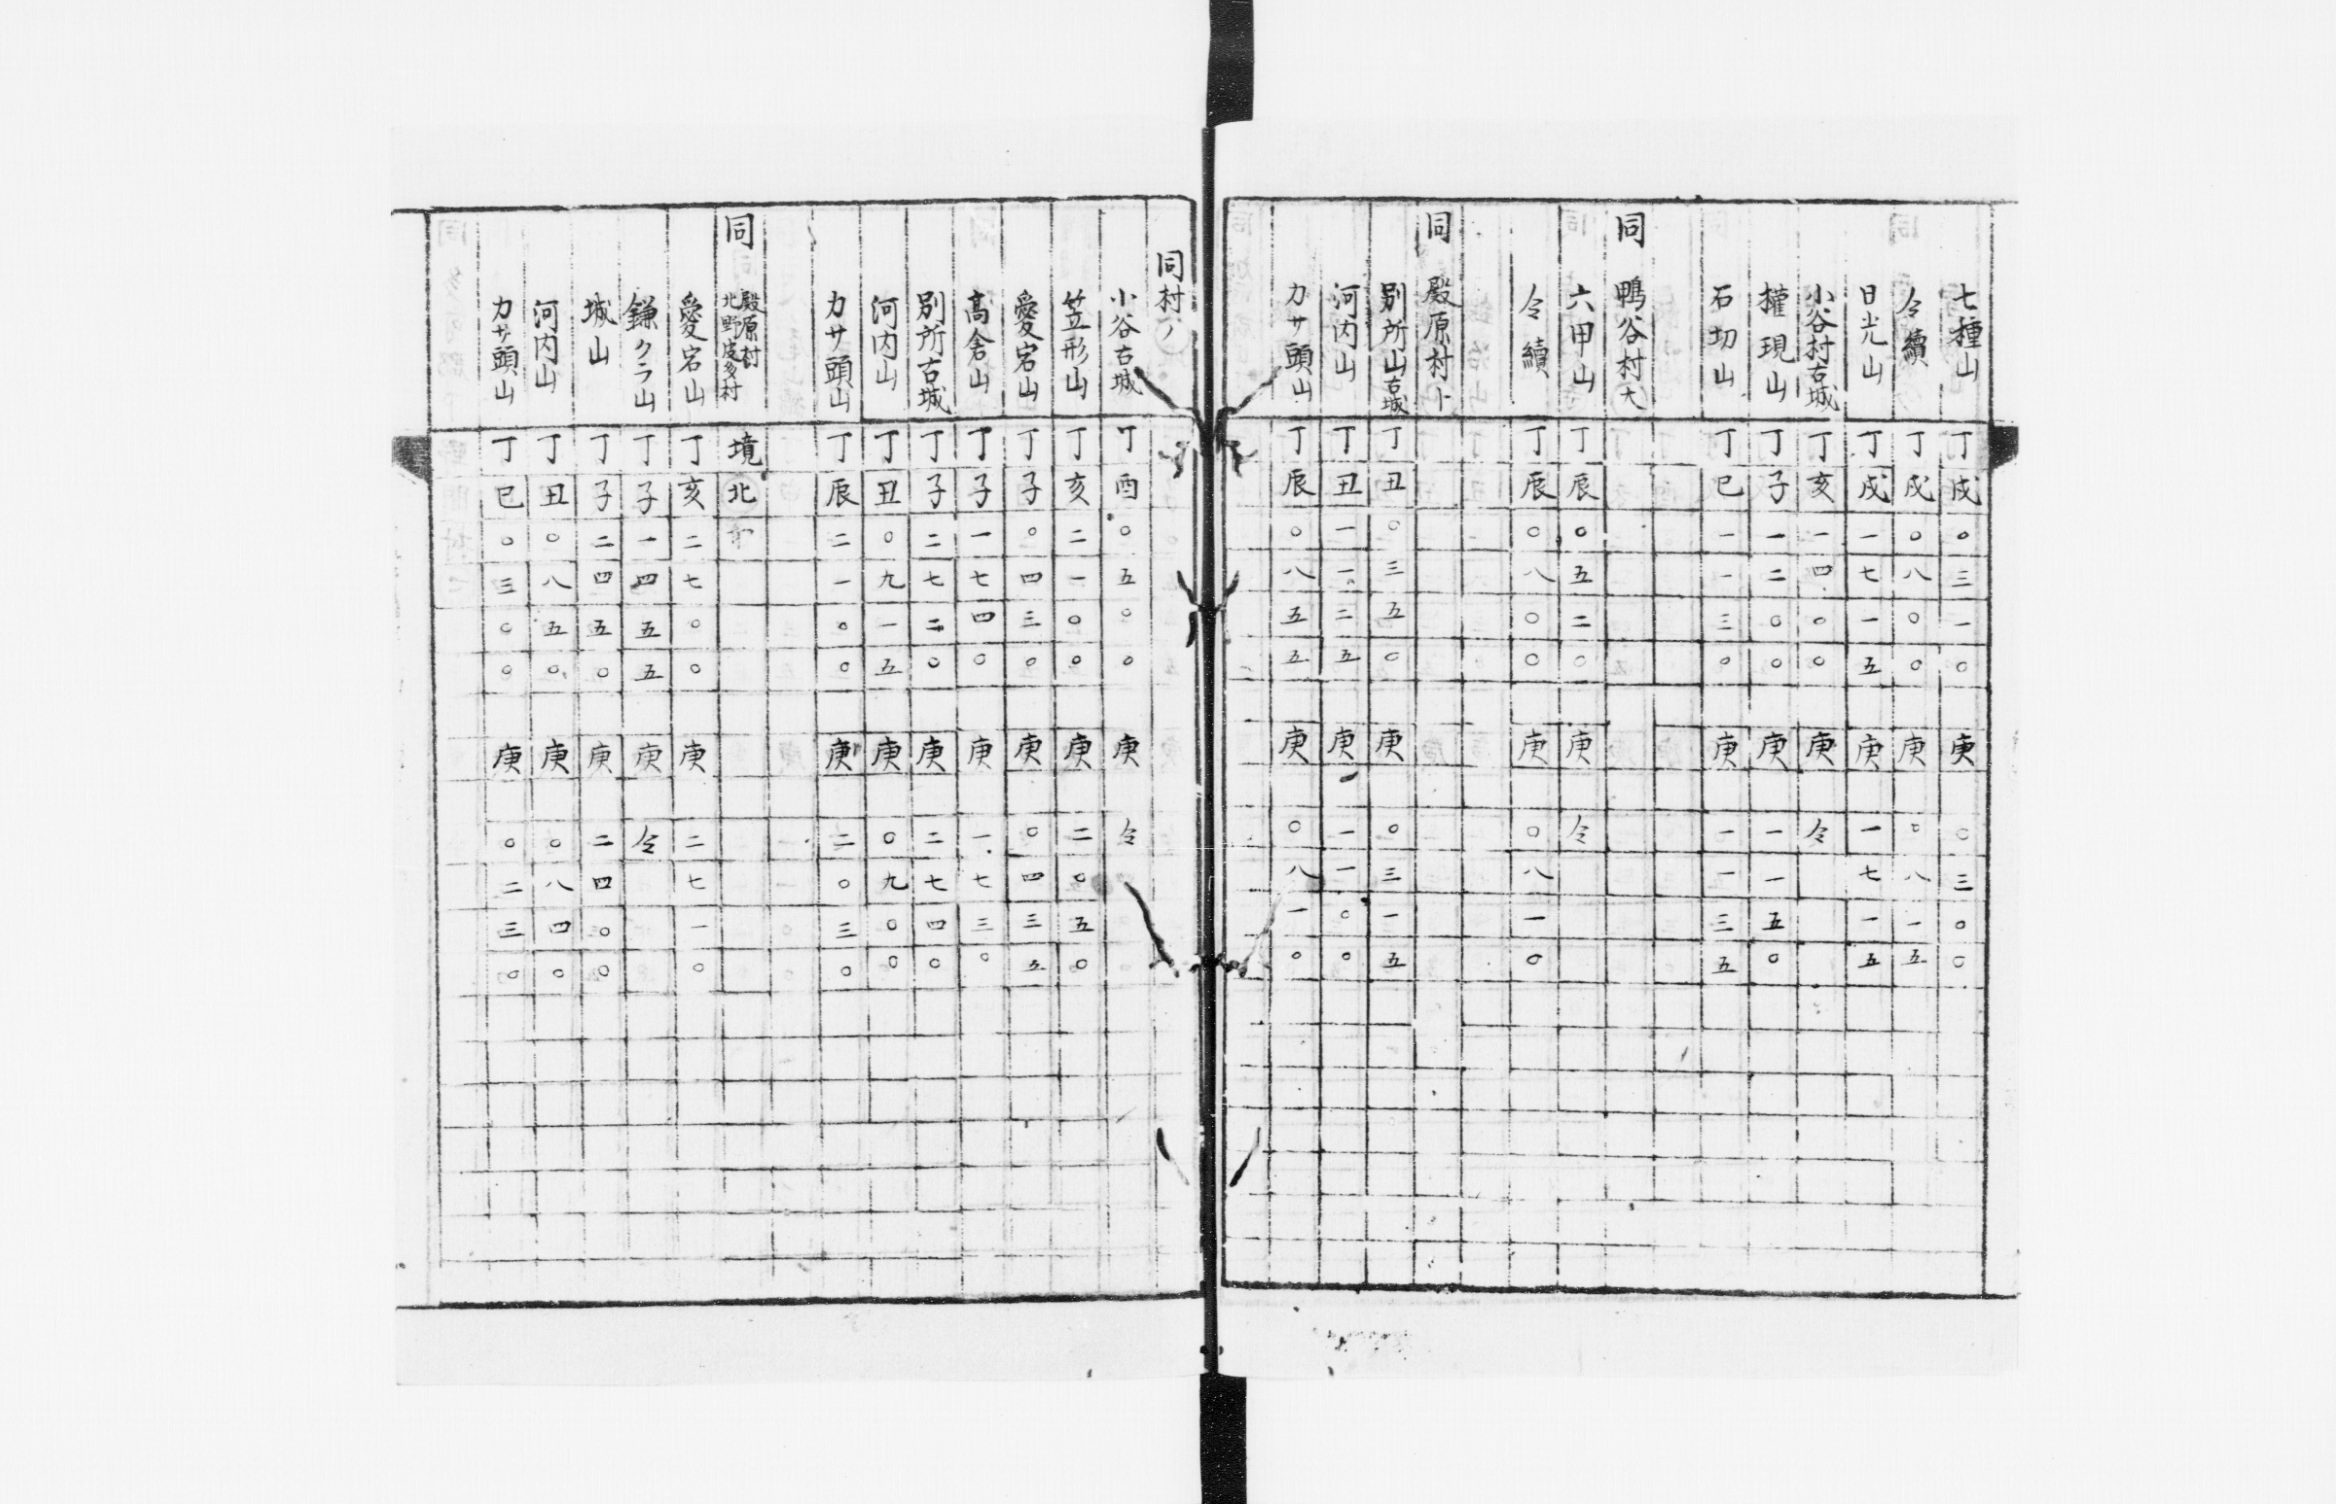 七種山 丁戌〇三一〇 庚〇三〇〇
仝續 丁戌〇八〇〇 庚〇八一五
日光山 丁戌一七一五 庚一七一五
小谷村古城 丁亥一四〇〇 庚仝
權現山 丁子一二〇〇 庚一一五〇
石切山 丁巳一一三〇 庚一一三五
同 鴨谷村大
六甲山 丁辰〇五二〇 庚仝
仝續 丁辰〇八〇〇 庚〇八一〇
同 殿原村ト
別所山古城 丁丑〇三五〇 庚〇三一五
河内山 丁丑一一二五 庚一一〇〇
カサ頭山 丁辰〇八五五 庚〇八一〇
同村ノ
小谷古城 丁酉〇五〇〇 庚仝
笠形山 丁亥二一〇〇 庚二〇五〇
愛宕山 丁子〇四三〇 庚〇四三五
髙倉山 丁子一七四〇 庚一七三〇
別所古城 丁子二七二〇 庚二七四〇
河内山 丁丑〇九一五 庚〇九〇〇
カサ頭山 丁辰二一〇〇 庚二〇三〇
同 殿原村
北野皮多村 境 北
愛宕山 丁亥二七〇〇 庚二七一〇
鎌クラ山 丁子一四五五 庚仝
城山 丁子二四五〇 庚二四〇〇
河内山 丁丑〇八五〇 庚〇八四〇
カサ頭山 丁巳〇三〇〇 庚〇二三〇